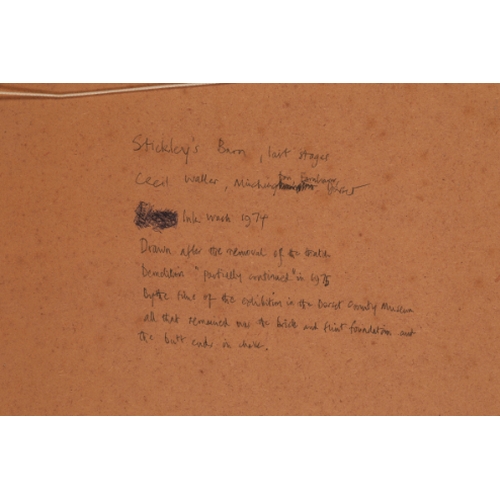 Stickley's Barn, last stages
Cecil Waller, Dorset
Ink Wash 1974
Drawn after the removal of the thatch
Demolition "partially continued" in 1975
By the time of the exhibition in the Dorset County Museum
all that remained was the brick and flint foundations and
the butt ends in chalk.